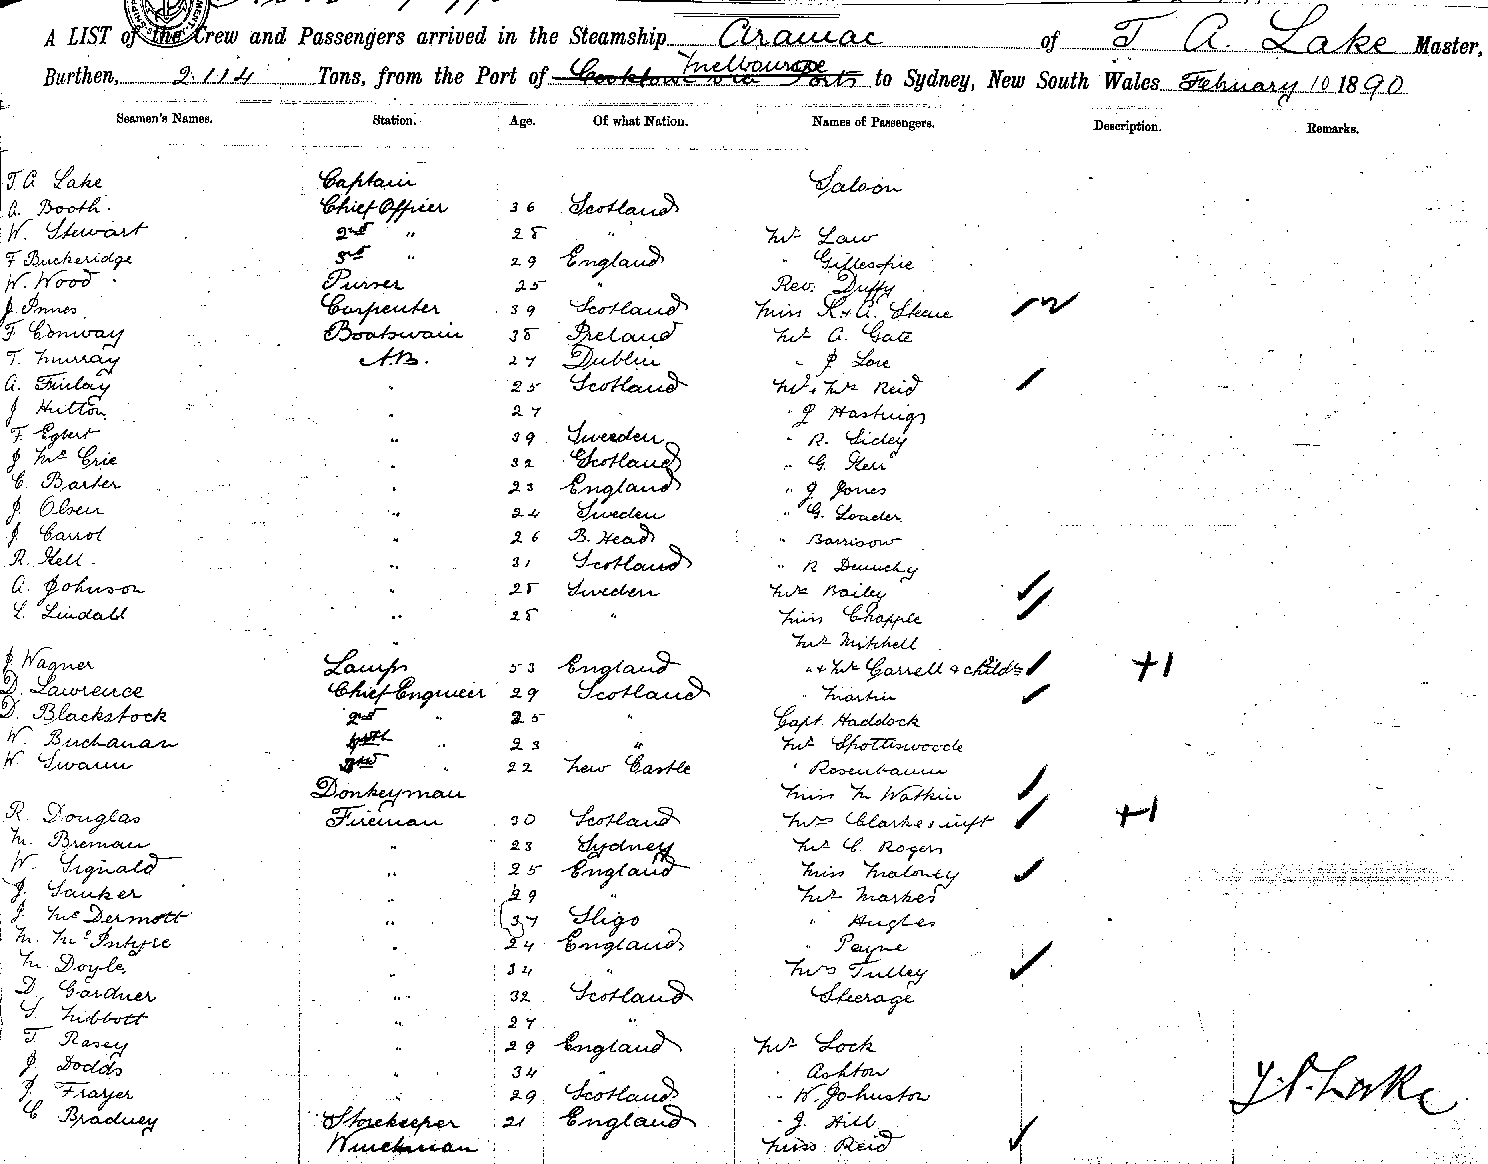 A LIST of the Crew and Passengers arrived in the Steamship Aramac of T A. Lake Master,
Burthen, 2114 Tons, from the Port of Cooktown via Ports Melbourne to Sydney, New South Wales February 10 1890
Seamen's Names. Station. Age. Of what Nation. Names of Passengers. Description. Remarks.
T A Lake Captain Saloon
A. Booth. Chief Officer 36 Scotland
W. Stewart 2nd " 28 " Mr Law
F Buckeridge 3rd " 29 England " Gillespie
W. Wood Purser 25 " Rev. Duffy
J. Innes Carpenter 39 Scotland Miss K & A.
F Conway Boatswain 38 Ireland Mr A. Gate
T. Murray A.B. 27 Dublin " J Love
A. Finlay " 25 Scotland Mr & Mrs Reid
J Hutton " 27 " J Hastings
F. Egbert " 39 Sweden " R. Sidey
J McCrie " 32 Scotland " G. Kerr
C. Barter " 23 England " J Jones
J. Olsen " 24 Sweden " G. Loader
J Carrol " 26 B. Head " Barrisow
R. Kell. " 31 Scotland " R Dunchy
A. Johnson " 28 Sweden Mrs Bailey
L. Lindall " 28 " Miss Chapple
" Mr Mitchell
J Wagner Lamps 53 England " & Mrs Garrell & child +1
D. Lawrence Chief Engineer 29 Scotland " Martin
D. Blackstock 2nd " 25 " Capt. Haddock
W. Buchanan " 23 " Mr Spottiswoode
W. Swann 3rd " 22 New Castle " Rosenbaum
Donkeyman Miss M Watkin
R. Douglas Fireman 30 Scotland Mrs Clarke & inft +1
M. Brenan " 23 Sydney Mr C. Rogers
W. Signald " 25 England Miss Maloney
J. Sauker 29 " Mr Markes
J. McDermott " 37 Sligo " Hughes
M. McIntyre " 24 England " Payne
M. Doyle " 34 " Mrs Tulley
D. Gardner " 32 Scotland Steerage
S. Libbott " 27 "
T. Rasey " 29 England Mr Lock
J. Dodds " 34 " " Ashton
J. Frazer " 29 Scotland " W. Johnston
C Bradney Storekeeper 21 England " J. Hill
Winchman Miss Reid
T. A. Lake